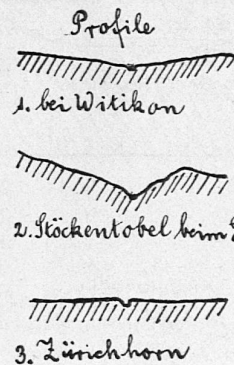 Profile
1. bei Witikon
2. Stöckentobel beim
3. Zürichhorn